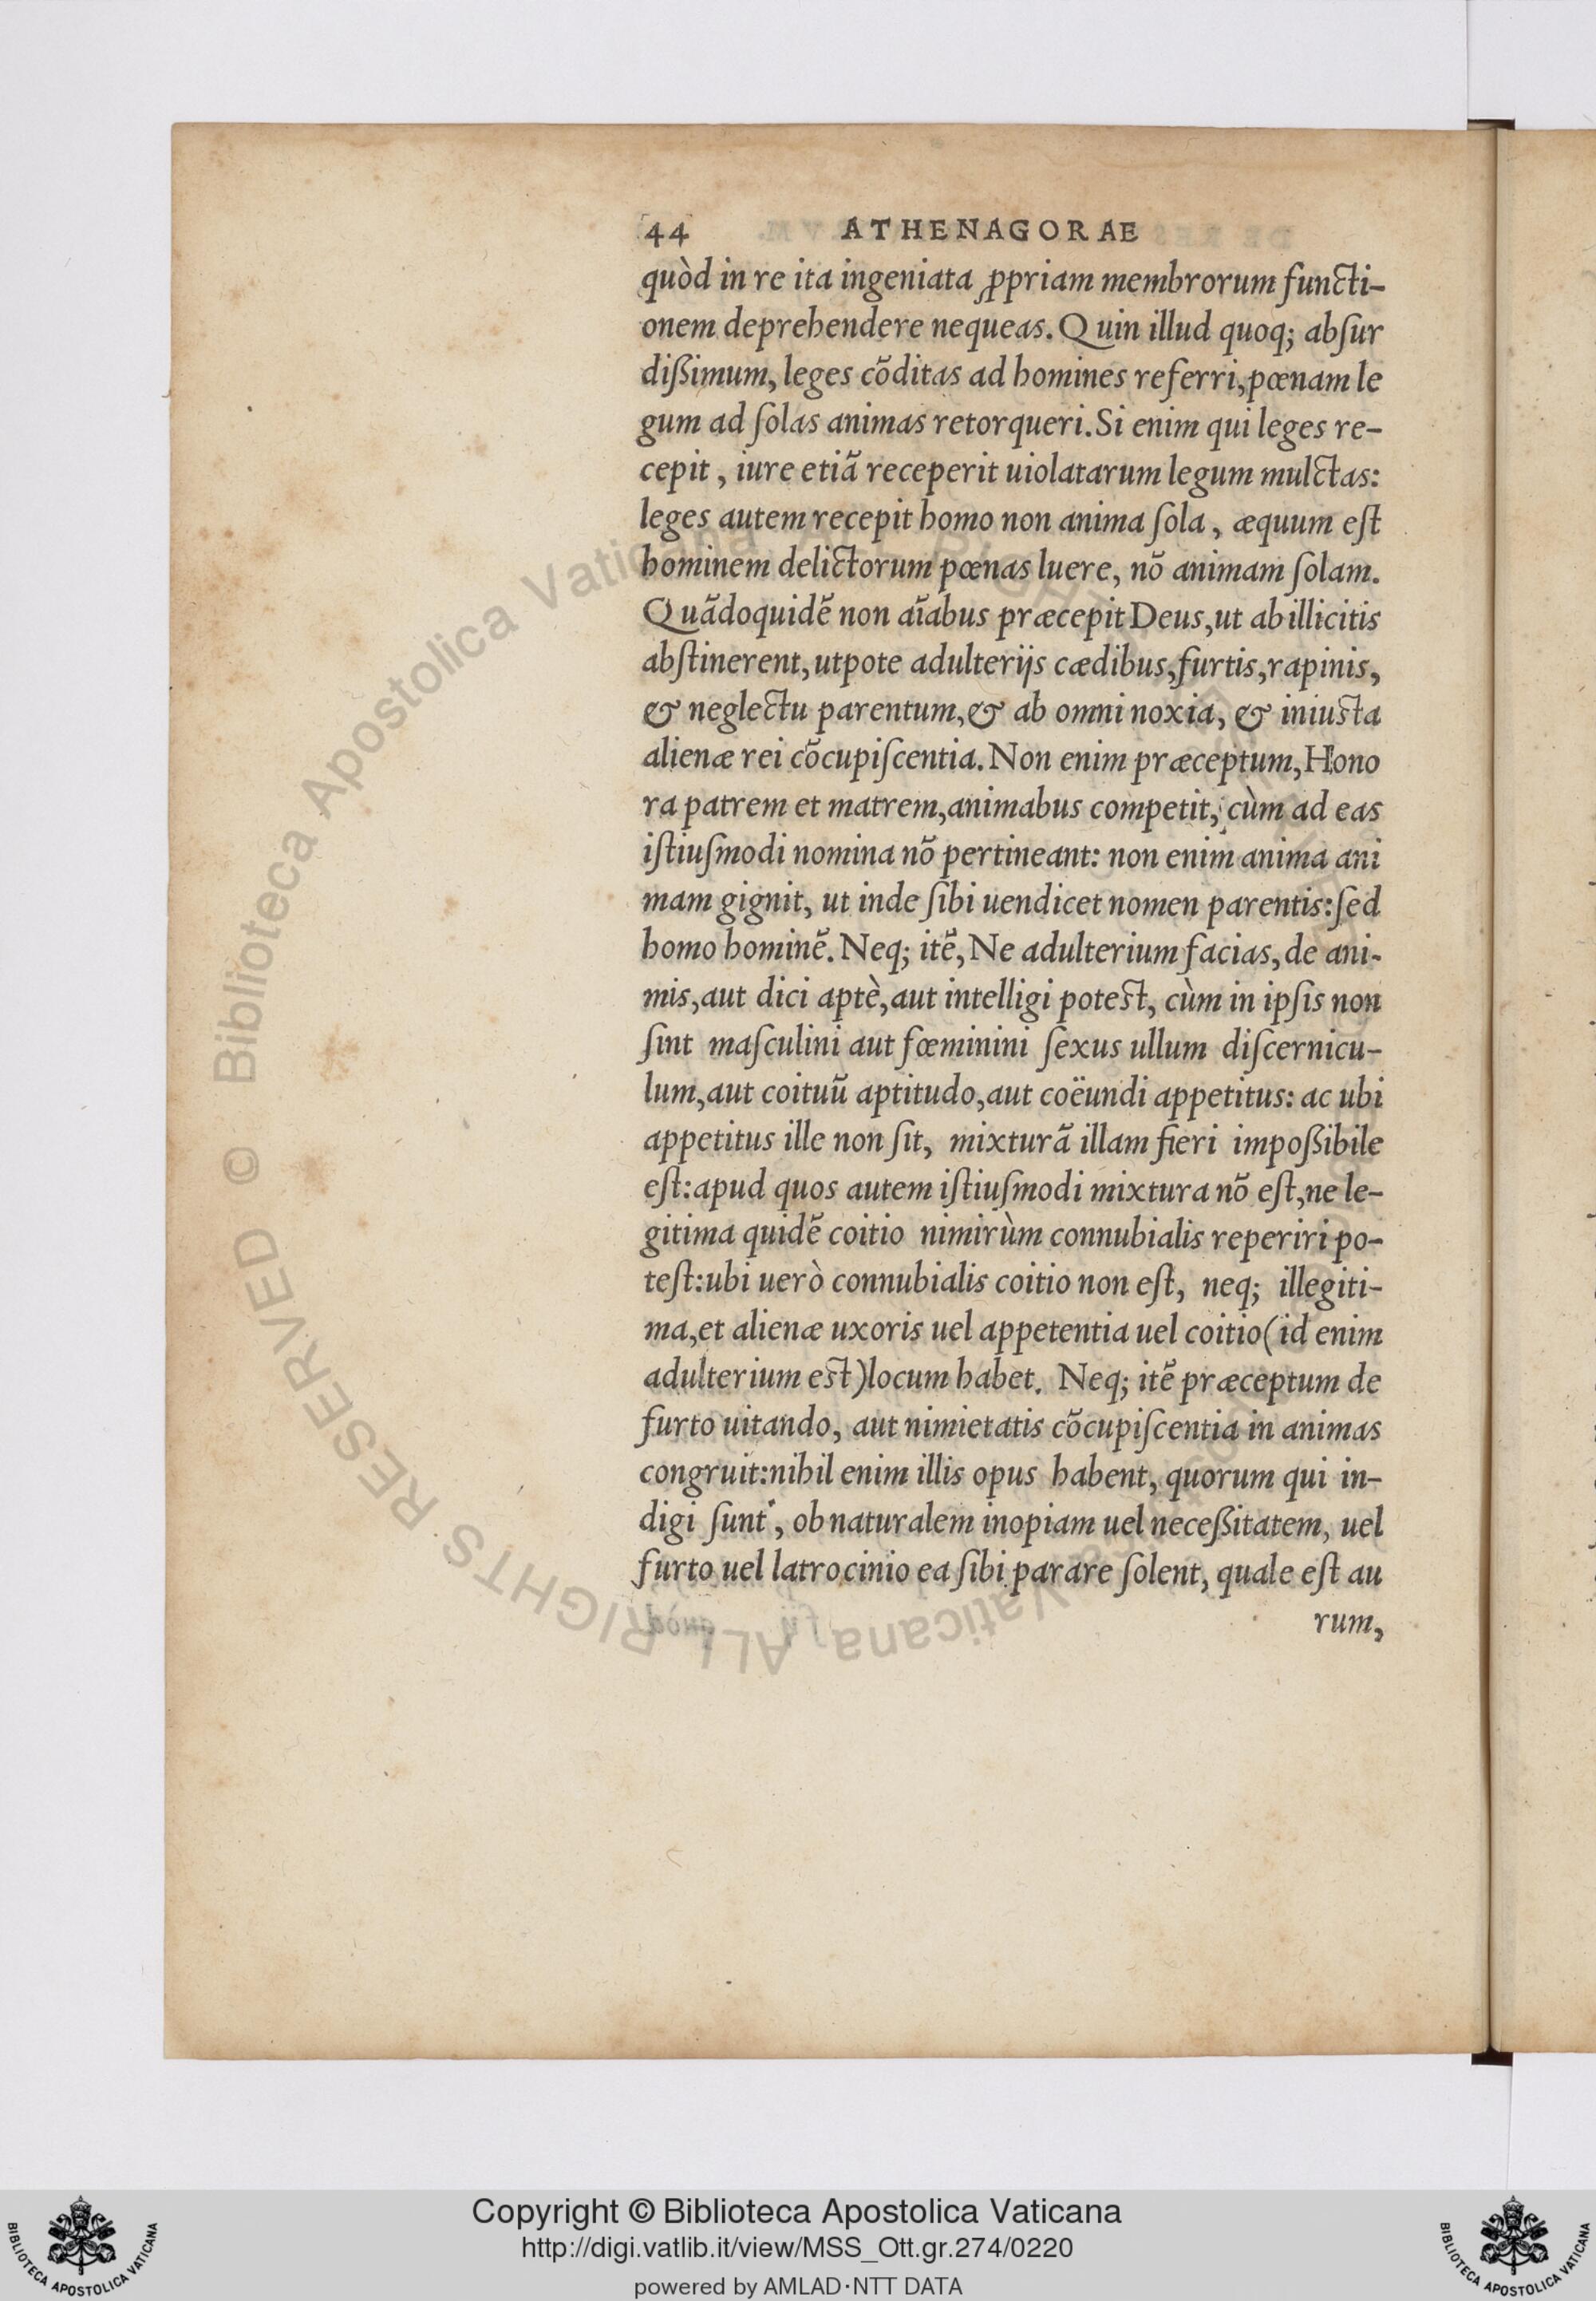 44 ATHENAGORAE
quòd in re ita ingeniata ꝓpriam membrorum functi-
onem deprehendere nequeas. Quin illud quoq; absur
dißimum, leges cõditas ad homines referri, pœnam le
gum ad ſolas animas retorqueri. Si enim qui leges re-
cepit, iure etiã receperit uiolatarum legum mulctas:
leges autem recepit homo non anima ſola, æquum eſt
hominem delictorum pœnas luere, nõ animam ſolam.
Quãdoquidẽ non aĩabus præcepit Deus, ut ab illicitis
abſtinerent, utpote adulterijs cædibus, furtis, rapinis,
& neglectu parentum, & ab omni noxia, & iniusta
alienæ rei cõcupiſcentia. Non enim præceptum, Hono
ra patrem et matrem, animabus competit, cùm ad eas
iſtiuſmodi nomina nõ pertineant: non enim anima ani
mam gignit, ut inde ſibi uendicet nomen parentis: ſed
homo hominẽ. Neq; itẽ, Ne adulterium facias, de ani-
mis, aut dici aptè, aut intelligi potest, cùm in ipſis non
ſint maſculini aut fœminini ſexus ullum diſcernicu-
lum, aut coituũ aptitudo, aut coëundi appetitus: ac ubi
appetitus ille non ſit, mixturã illam fieri impoßibile
eſt: apud quos autem iſtiuſmodi mixtura nõ eſt, ne le-
gitima quidẽ coitio nimirùm connubialis reperiri po-
teſt: ubi uerò connubialis coitio non eſt, neq; illegiti-
ma, et alienæ uxoris uel appetentia uel coitio (id enim
adulterium est) locum habet. Neq; itẽ præceptum de
furto uitando, aut nimietatis cõcupiſcentia in animas
congruit: nihil enim illis opus habent, quorum qui in-
digi ſunt, ob naturalem inopiam uel neceßitatem, uel
furto uel latrocinio ea ſibi parare ſolent, quale eſt au
rum,
© Biblioteca Apostolica Vaticana, ALL RIGHTS RESERVED
Copyright © Biblioteca Apostolica Vaticana
http://digi.vatlib.it/view/MSS_Ott.gr.274/0220
powered by AMLAD·NTT DATA
BIBLIOTECA APOSTOLICA VATICANA
BIBLIOTECA APOSTOLICA VATICANA